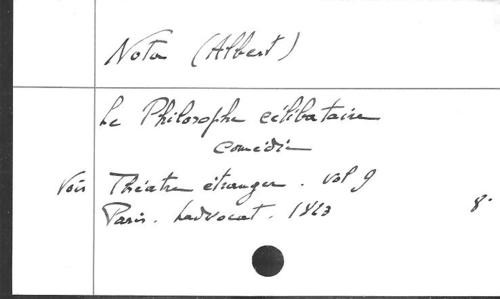 Nota (Albert)
Le Philosophe célibataire
comédie
Voir Théatre étranger. vol 9
Paris. Ladvocat. 1823 8°